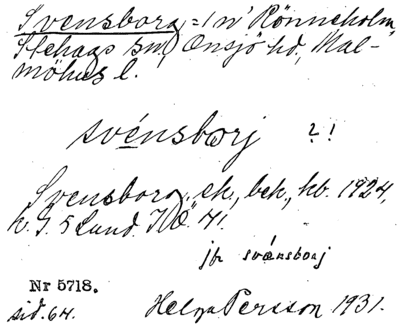 Svensborg = 1 n' Rönneholm,
Stehags sn, Onsjö hd, Mal-
möhus l.
svénsbωrj ?!
Svensborg,
1924,
jfr svænsborj
Nr 5718.
sid. 64. Helga Persson 1931.